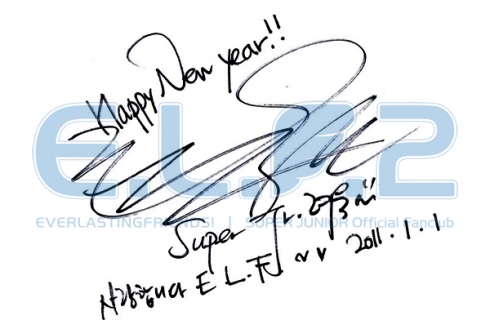 Happy New year!!
E.L.F.2
EVERLASTINGFRIENDS! | SUPER JUNIOR Official Fanclub
Super Jr. 려욱!!
사랑합니다 E.L.F vv 2011.1.1